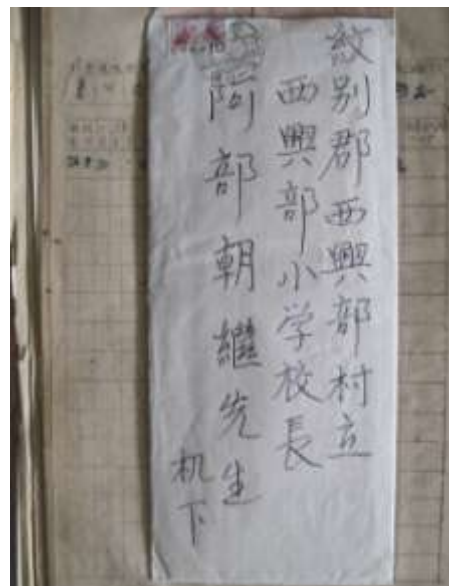 紋別郡西興部村立
西興部小学校長
阿部朝繼先生
机下